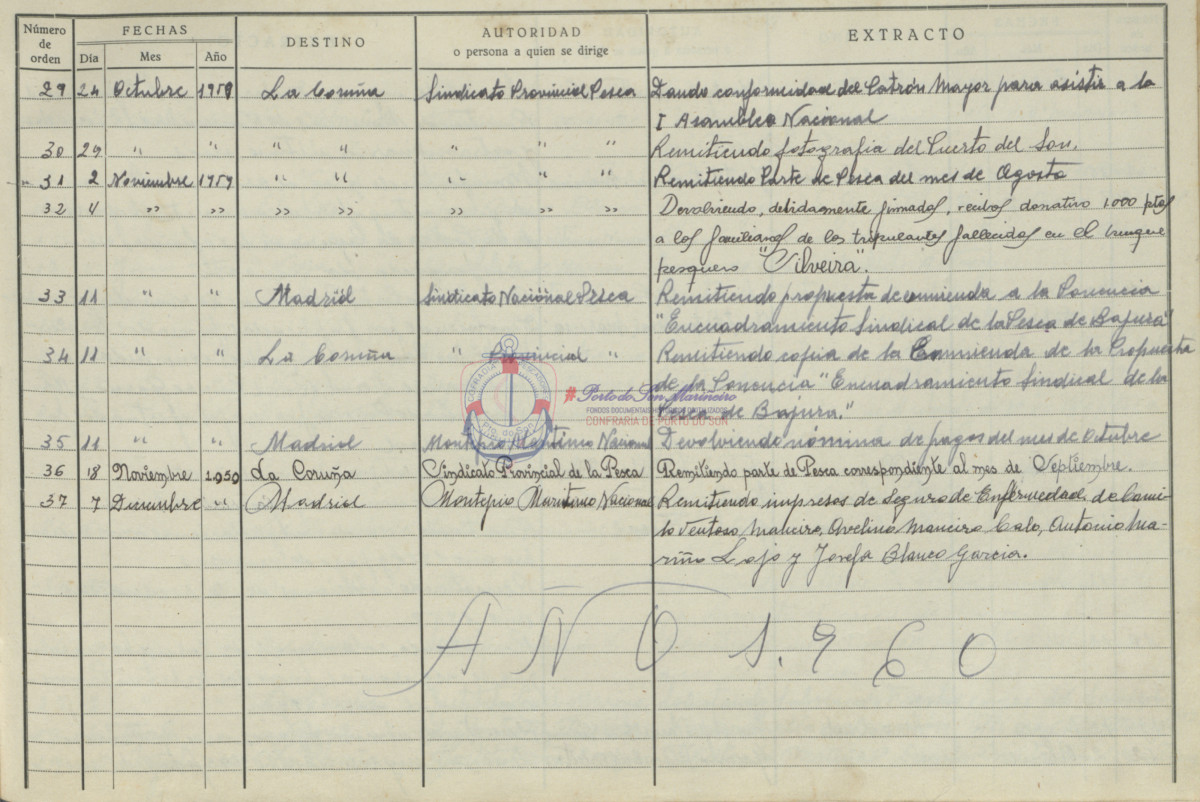 Número de orden FECHAS DESTINO AUTORIDAD o persona a quien se dirige EXTRACTO
Día Mes Año
29 24 Octubre 1959 La Coruña Sindicato Provincial Pesca Dando conformidad del Patrón Mayor para asistir a la
I Asamblea Nacional
30 29 " " " " " " " Remitiendo fotografia del Puerto del Son.
31 2 Noviembre 1959 " " " " " Remitiendo Parte de Pesca del mes de Agosto
32 4 " " " " " " " Devolviendo, debidamente firmados, recibos donativo 1.000 ptas
a los familiares de los tripulantes fallecidos en el buque
pesquero "Silveira".
33 11 " " Madrid Sindicato Nacional Pesca Remitiendo propuesta de enmienda a la Ponencia
"Encuadramiento Sindical de la Pesca de Bajura"
34 11 " " La Coruña " Provincial " Remitiendo copia de la Enmienda de la Propuesta
de la Ponencia "Encuadramiento Sindical de la
Pesca de Bajura."
35 11 " " Madrid Montepio Maritimo Nacional Devolviendo nómina de pagos del mes de Octubre
36 18 Noviembre 1.959 La Coruña Sindicato Provincial de la Pesca Remitiendo parte de Pesca correspondiente al mes de Septiembre.
37 7 Diciembre " Madrid Montepio Maritimo Nacional Remitiendo impresos de Seguro de Enfermedad de Cami-
lo Ventoso Maneiro, Avelino Maneiro Calo, Antonio Ma-
riño Lojo y Josefa Blanco Garcia.
AÑO 1.960
CONFRADÍA PESCADORES
Pto. do Son
#Porto do Son Marineiro
CONFRARIA DE PORTO DO SON